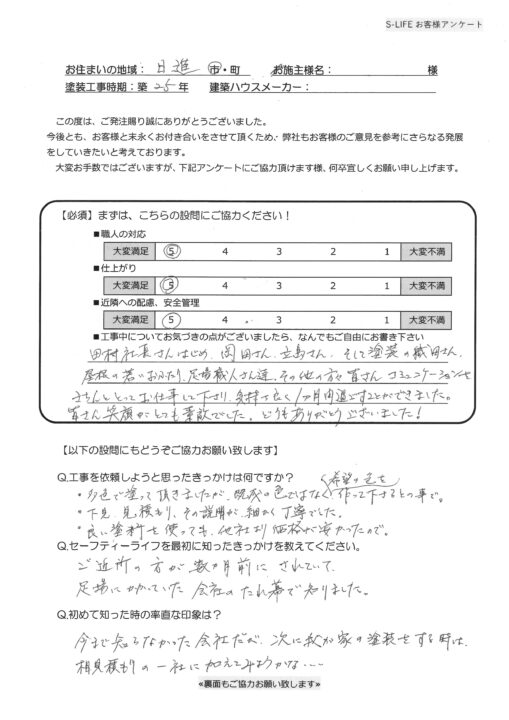 S-LIFE お客様アンケート
お住まいの地域： 日進 市・町 お施主様名： 様
塗装工事時期：築 25 年 建築ハウスメーカー：
この度は、ご発注賜り誠にありがとうございました。
今後とも、お客様と末永くお付き合いをさせて頂くため、弊社もお客様のご意見を参考にさらなる発展
をしていきたいと考えております。
大変お手数ではございますが、下記アンケートにご協力頂けます様、何卒宜しくお願い申し上げます。
【必須】まずは、こちらの設問にご協力ください！
■職人の対応
大変満足 5 4 3 2 1 大変不満
■仕上がり
大変満足 5 4 3 2 1 大変不満
■近隣への配慮、安全管理
大変満足 5 4 3 2 1 大変不満
■工事中についてお気づきの点がございましたら、なんでもご自由にお書き下さい
田村社長さんはじめ、岡田さん、立島さん、そして塗装の織田さん、
屋根の若いおふたり、足場職人さん達、その他の方々皆さん コミュニケーションを
きちんととってお仕事して下さり、気持ち良く1ヶ月間過ごすことができました。
皆さん笑顔がとても素敵でした。どうもありがとうございました！
【以下の設問にもどうぞご協力お願い致します】
Q.工事を依頼しようと思ったきっかけは何ですか？
希望の色を
・多色で塗って頂きましたが、既成の色ではなく作って下さるとの事で。
・下見、見積もり、その説明が細かく丁寧でした。
・良い塗料を使っても、他社より価格が安かったので。
Q.セーフティーライフを最初に知ったきっかけを教えてください。
ご近所の方が数ヶ月前にされていて、
足場にかかっていた会社のたれ幕で知りました。
Q.初めて知った時の率直な印象は？
今まで知らなかった会社だが、次に我が家の塗装をする時は、
相見積もりの一社に加えてみようかな…
≪裏面もご協力お願い致します≫